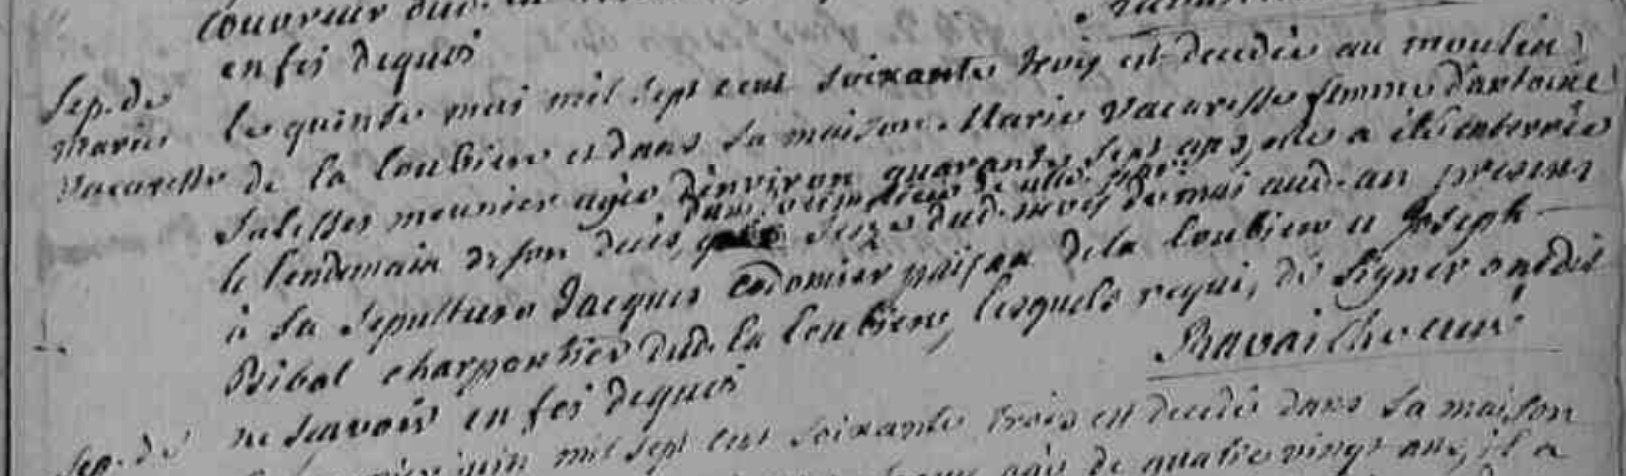 couvreur dud.
en foi dequoi
Sep. de
Marie
Vacaresse
le quinze mai mil sept cent soixante trois est decedée au moulin
de la Loubiere et dans sa maison Marie Vacaresse femme d'antoine
Salesses meunier agée d'environ quarante sept ans, elle a été enterrée
dans le cimetiere de cette par.
le lendemain de son decés, seize dud. mois de mai aud. an presens
à sa sepulture Jacques codomier paisan de la Loubiere et Joseph
Bibal charpentier dud. la Loubiere, lesquels requis de signer ont dit
ne scavoir en foi dequoi
Ravailhe curé
Sep. de
juin mil sept cent soixante trois est decedé dans sa maison
agé de quatre vingt ans, il a